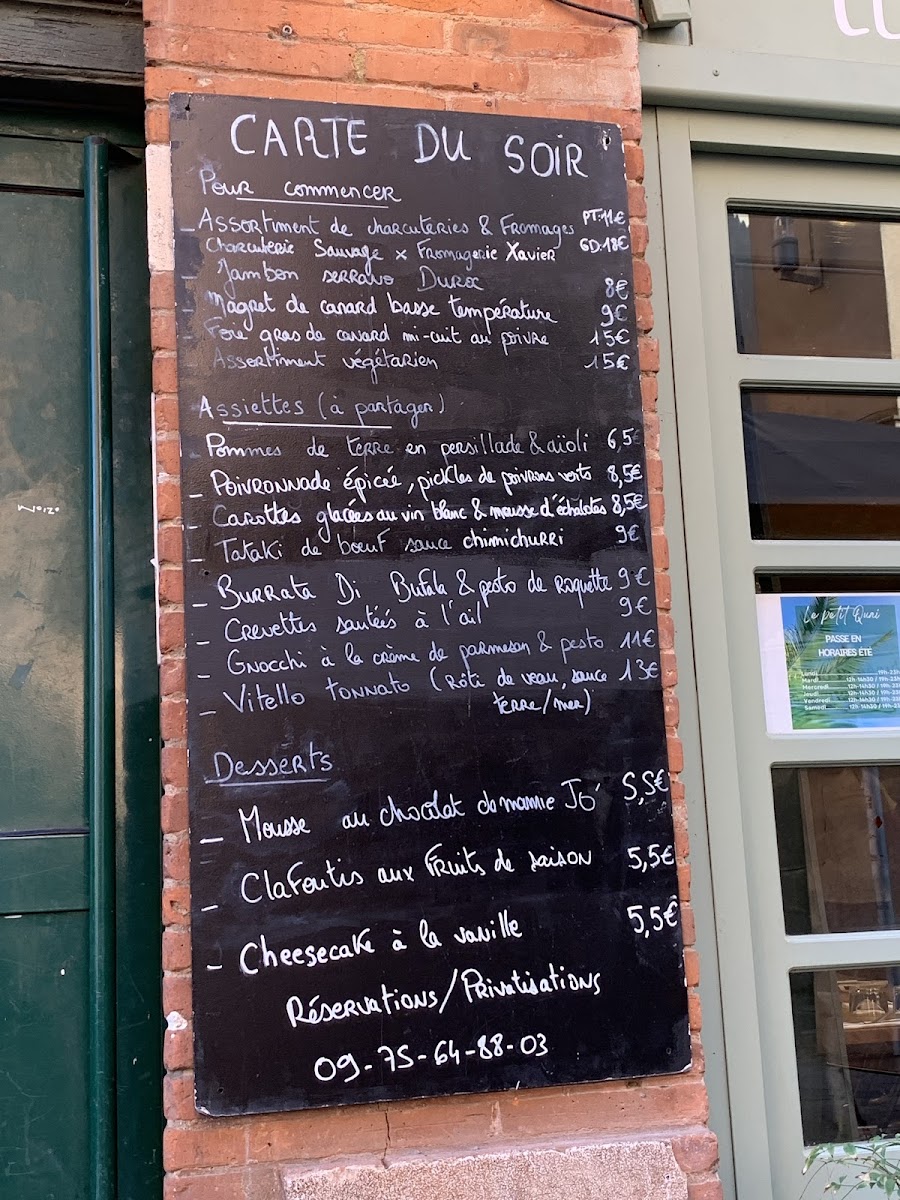 CARTE DU SOIR
Pour commencer
- Assortiment de charcuteries & Fromages PT:11€
Charcuterie Sauvage x Fromagerie Xavier GD:18€
- Jambon serrano Duroc 8€
- Magret de canard basse température 9€
- Foie gras de canard mi-cuit au poivre 15€
- Assortiment végétarien 15€
Assiettes (à partager)
- Pommes de terre en persillade & aïoli 6,5€
- Poivronnade épicée, pickles de poivrons verts 8,5€
- Carottes glacées au vin blanc & mousse d'échalotes 8,5€
- Tataki de bœuf sauce chimichurri 9€
- Burrata Di Bufala & pesto de roquette 9€
- Crevettes sautées à l'ail 9€
- Gnocchi à la crème de parmesan & pesto 11€
- Vitello tonnato (rôti de veau, sauce 13€
terre/mer)
Desserts
- Mousse au chocolat de mamie Jo 5,5€
- Clafoutis aux fruits de saison 5,5€
- Cheesecake à la vanille 5,5€
Réservations/Privatisations
09-75-64-88-03
Le petit Quai
PASSE EN
HORAIRES ÉTÉ
Lundi 19h-23h
Mardi 12h-14h30 / 19h-23
Mercredi 12h-14h30 / 19h-23
Jeudi 12h-14h30 / 19h-23
Vendredi 12h-14h30 / 19h-23
Samedi 12h-14h30 / 19h-23